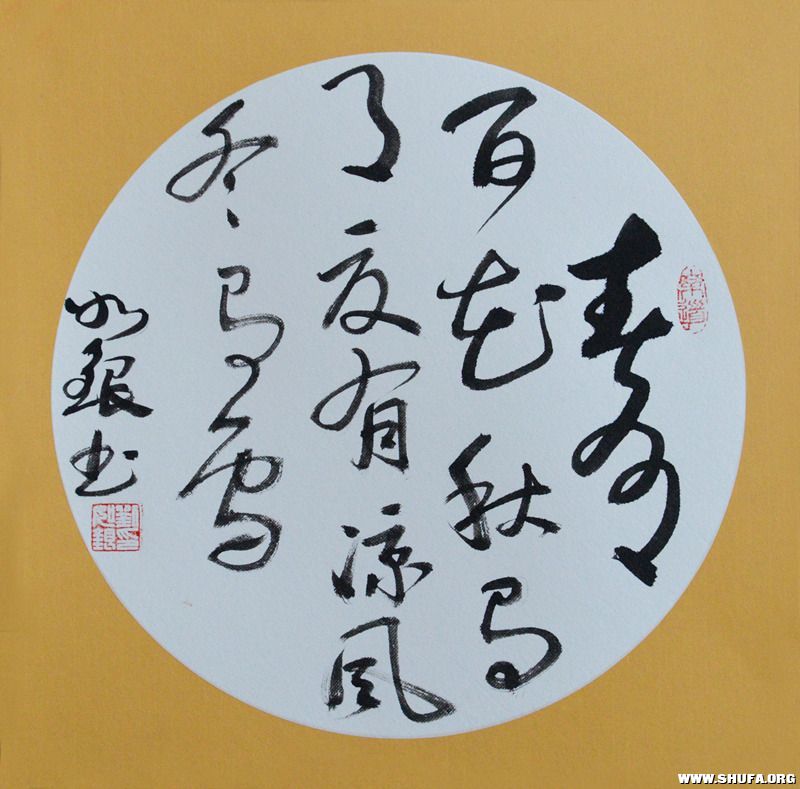 春有
百花秋有
月夏有凉风
冬有雪
如銀书
WWW.SHUFA.ORG